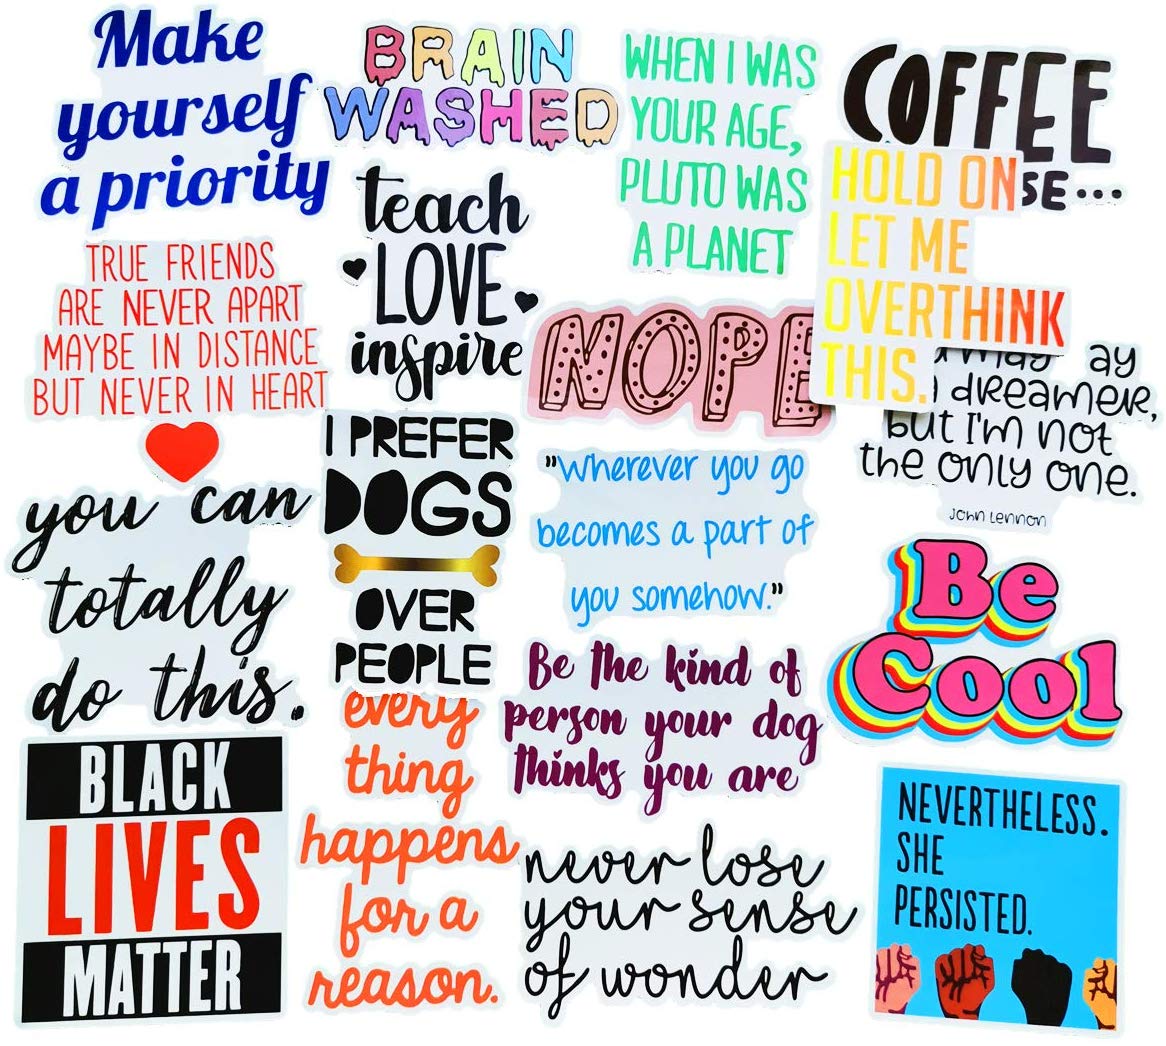 Make
yourself
a priority
BRAIN
WASHED
WHEN I WAS
YOUR AGE,
PLUTO WAS
A PLANET
COFFEE
SE...
HOLD ON
LET ME
OVERTHINK
THIS.
teach
LOVE
inspire
TRUE FRIENDS
ARE NEVER APART
MAYBE IN DISTANCE
BUT NEVER IN HEART
NOPE
may ay
dreamer,
but I'm not
the only one.
John Lennon
I PREFER
DOGS
OVER
PEOPLE
"Wherever you go
becomes a part of
you somehow."
you can
totally
do this.
Be Cool
Be the kind of
person your dog
thinks you are
every
thing
happens
for a
reason.
BLACK
LIVES
MATTER
never lose
your sense
of wonder
NEVERTHELESS.
SHE
PERSISTED.